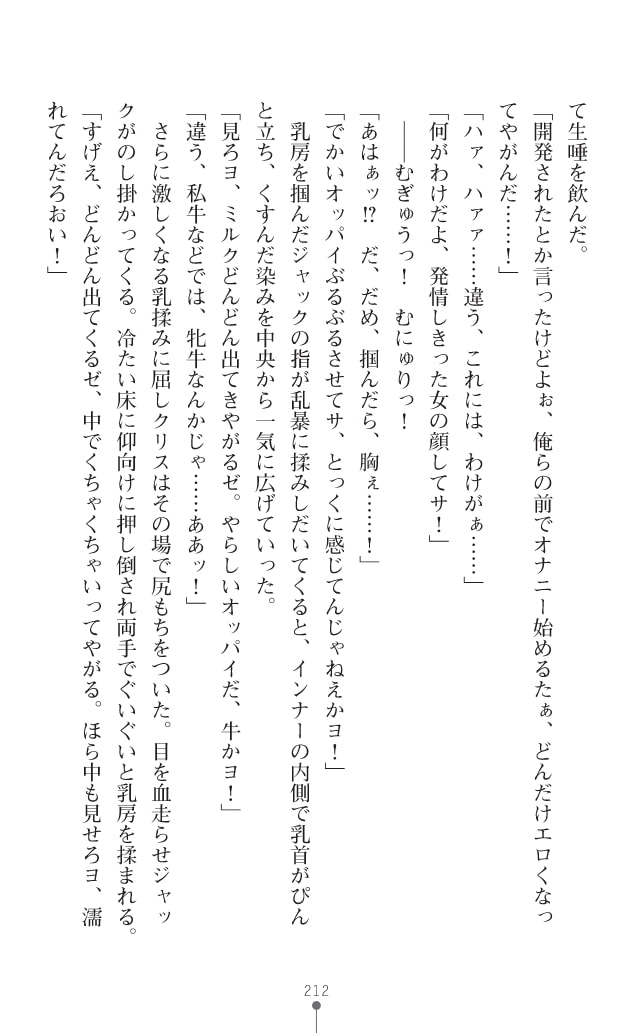 て生唾を飲んだ。
「開発されたとか言ったけどよぉ、俺らの前でオナニー始めるたぁ、どんだけエロくなっ
てやがんだ……！」
「ハァ、ハァァ……違う、これには、わけがぁ……」
「何がわけだよ、発情しきった女の顔してサ！」
――むぎゅうっ！　むにゅりっ！
「あはぁッ!?　だ、だめ、掴んだら、胸ぇ……！」
「でかいオッパイぶるぶるさせてサ、とっくに感じてんじゃねえかヨ！」
乳房を掴んだジャックの指が乱暴に揉みしだいてくると、インナーの内側で乳首がぴん
と立ち、くすんだ染みを中央から一気に広げていった。
「見ろヨ、ミルクどんどん出てきやがるゼ。やらしいオッパイだ、牛かヨ！」
「違う、私牛などでは、牝牛なんかじゃ……ああッ！」
さらに激しくなる乳揉みに屈しクリスはその場で尻もちをついた。目を血走らせジャッ
クがのし掛かってくる。冷たい床に仰向けに押し倒され両手でぐいぐいと乳房を揉まれる。
「すげえ、どんどん出てくるゼ、中でくちゃくちゃいってやがる。ほら中も見せろヨ、濡
れてんだろおい！」
212